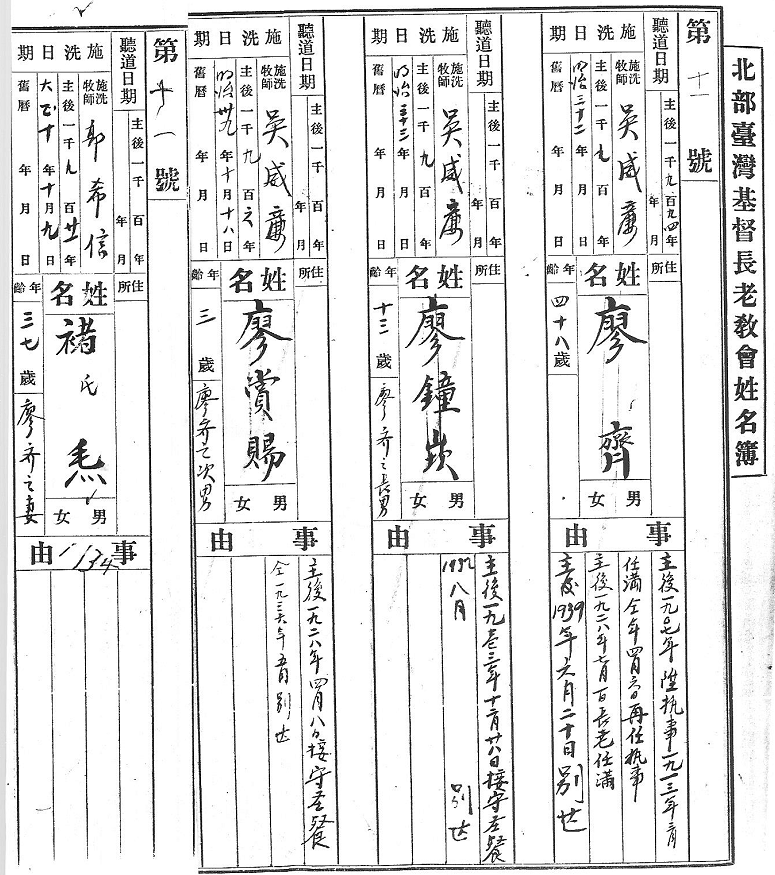 北部臺灣基督長老教會姓名簿
第十一號
聽道日期 主後一千九百九四年 年 月
施洗日期
施洗牧師 吳威廉
主後一千九百 年
明治三十二年 月 日
舊曆 年 月 日
住所
姓名 廖齊
男 女
年齡 四十八歲
事由
主後一九〇七年陞執事一九一三年 月
任滿仝年四月六日再任執事
主後一九二八年七月 日長老任滿
主後1939年六月二十日別世
聽道日期 主後一千 百 年 年 月
施洗日期
施洗牧師 吳威廉
主後一千九百 年
明治三十三年 月 日
舊曆 年 月 日
住所
姓名 廖鐘崁
男 女
年齡 十三歲
廖齊之長男
事由
主後一九 年十二月廿八日接守圣餐
193 八月 別世
聽道日期 主後一千 百 年 年 月
施洗日期
施洗牧師 吳威廉
主後一千九百六年
明治卅九年十月十八日
舊曆 年 月 日
住所
姓名 廖賞賜
男 女
年齡 三歲
廖齊之次男
事由
主後一九二八年四月八日接守圣餐
仝一九三六年 月別世
第十一號
聽道日期 主後一千 百 年 年 月
施洗日期
施洗牧師 郭希信
主後一千九百廿年
大正十年十月九日
舊曆 年 月 日
住所
姓名 褚氏
男 女
年齡 三七歲
廖齊之妻
事由
134